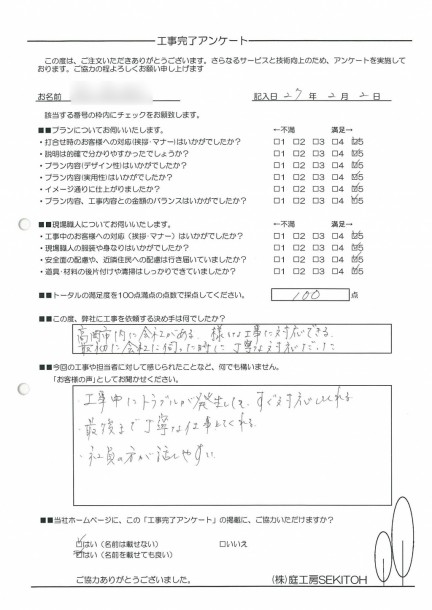 工事完了アンケート
この度は、ご注文いただきありがとうございます。さらなるサービスと技術向上のため、アンケートを実施して
おります。ご協力の程よろしくお願い申し上げます
お名前 記入日 27 年 2 月 2 日
該当する番号の枠内にチェックをお願致します。
■■プランについてお伺いいたします。 ←不満 満足→
・打合せ時のお客様への対応(挨拶・マナー)はいかがでしたか? □1 □2 □3 □4 ☑5
・説明は的確で分かりやすかったでしょうか? □1 □2 □3 □4 ☑5
・プラン内容(デザイン性)はいかがでしたか? □1 □2 □3 □4 ☑5
・プラン内容(実用性)はいかがでしたか? □1 □2 □3 □4 ☑5
・イメージ通りに仕上がりましたか? □1 □2 □3 □4 ☑5
・プラン内容、工事内容との金額のバランスはいかがでしたか? □1 □2 □3 □4 ☑5
■■現場職人についてお伺いいたします。 ←不満 満足→
・工事中のお客様への対応(挨拶・マナー)はいかがでしたか? □1 □2 □3 □4 ☑5
・現場職人の服装や身なりはいかがでしたか? □1 □2 □3 □4 ☑5
・安全面の配慮や、近隣住民への配慮は行き届いていましたか? □1 □2 □3 □4 ☑5
・道具・材料の後片付けや清掃はしっかりできていましたか? □1 □2 □3 □4 ☑5
■■トータルの満足度を100点満点の点数で採点してください。 100 点
■■この度、弊社に工事を依頼する決め手は何でしたか?
高岡市内に会社がある。様々な工事に対応できる。
最初に会社に伺った時に丁寧な対応だった
■■今回の工事や担当者に対して感じられたことなど、何でも構いません。
「お客様の声」としてお聞かせください。
・工事中にトラブルが発生しても、すぐ対応してくれる
・最後まで丁寧な仕事をしてくれる。
・社員の方が話しやすい
■■当社ホームページに、この「工事完了アンケート」の掲載に、ご協力いただけますか?
☑はい(名前は載せない) □いいえ
☑はい(名前を載せても良い)
ご協力ありがとうございました。 (株)庭工房SEKITOH